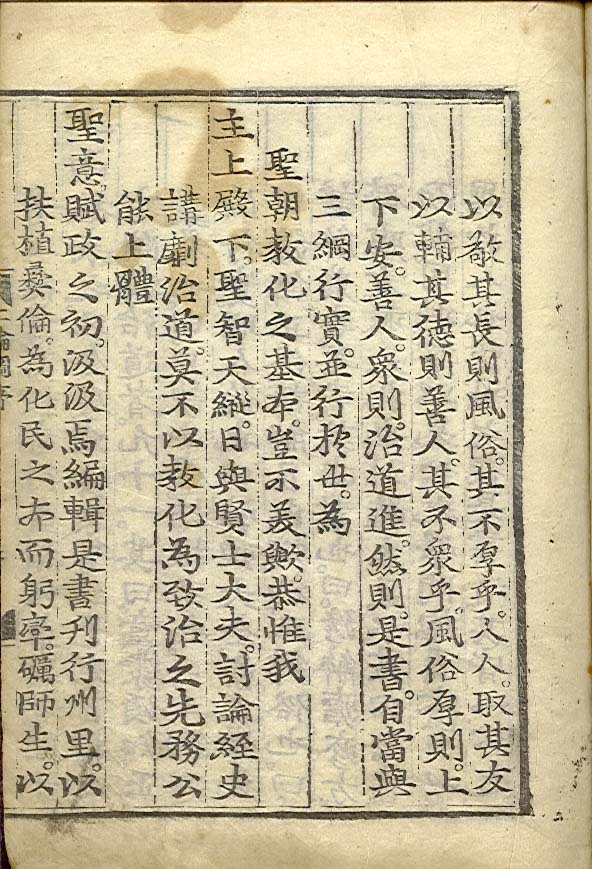 以敬其長則風俗。其不厚乎。人人。取其友
以輔其德則善人。其不衆乎。風俗厚則。上
下安。善人。衆則。治道進。然則。是書。自當與
三綱行實。並行於世。為
聖朝敎化之基本。豈不美歟。恭惟我
主上殿下。聖智天縱。日與賢士大夫。討論經史
講劘治道。莫不以敎化為致治之先務公
能上體
聖意。賦政之初。汲汲焉編輯是書刋行州里。以
扶植彛倫。為化民之本而躬率。礪師生。以
二倫圖序